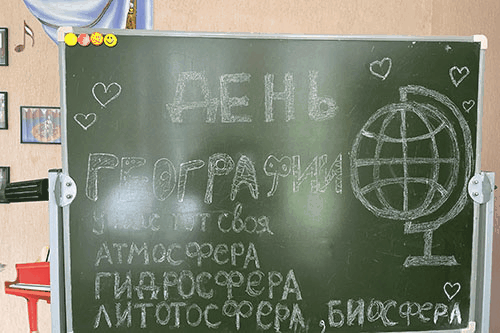 ДЕНЬ
ГЕОГРАФИИ
у нас тут своя
АТМОСФЕРА
ГИДРОСФЕРА
ЛИТОТОСФЕРА, БИОСФЕРА